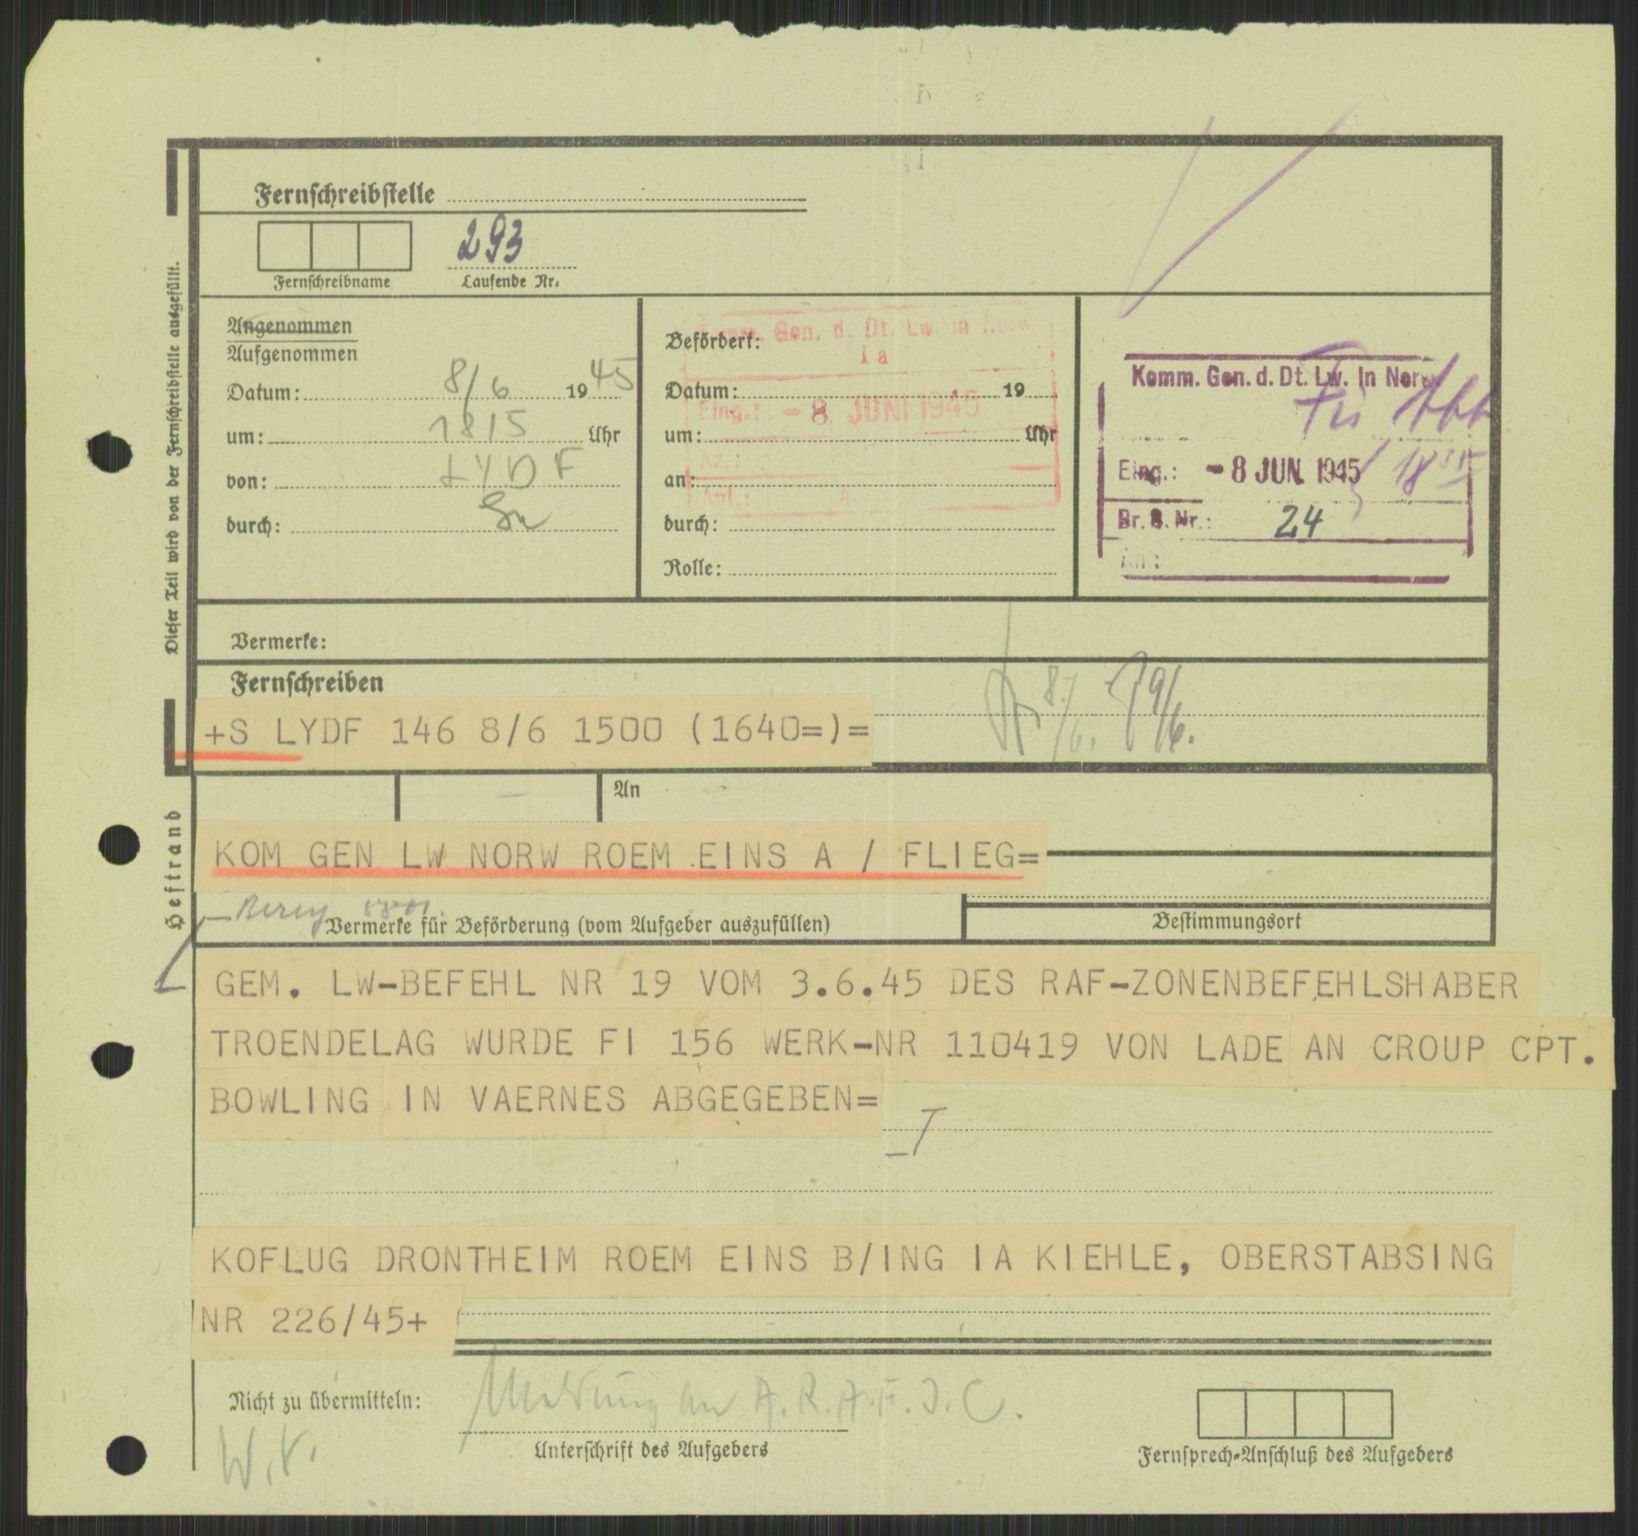 Fernschreibstelle
293
Fernschreibname
Laufende Nr.
Angenommen
Aufgenommen
Datum: 8/6 19 45
um: 1815 Uhr
von: LYDF
durch:
Befördert:
Datum: 19
um: Uhr
an:
durch:
Rolle:
Gen. d. Dt. Lw. in Norw
Ia
Eing.: - 8. JUNI 1945
Az.:
Anl.:
Komm. Gen. d. Dt. Lw. in Norw
Eing.: - 8 JUN. 1945
Br. B. Nr.: 24
Anl.:
Dieser Teil wird von der Fernschreibstelle ausgefüllt.
Vermerke:
Fernschreiben
8./6. 9/6.
+S LYDF 146 8/6 1500 (1640=)=
An
KOM GEN LW NORW ROEM EINS A / FLIEG=
Heftrand
Vermerke für Beförderung (vom Aufgeber auszufüllen)
Bestimmungsort
GEM. LW-BEFEHL NR 19 VOM 3.6.45 DES RAF-ZONENBEFEHLSHABER
TROENDELAG WURDE FI 156 WERK-NR 110419 VON LADE AN CROUP CPT.
BOWLING IN VAERNES ABGEGEBEN=
KOFLUG DRONTHEIM ROEM EINS B/ING IA KIEHLE, OBERSTABSING
NR 226/45+
Nicht zu übermitteln:
Meldung an A.R.A.F.D.C.
W.V.
Unterschrift des Aufgebers
Fernsprech-Anschluß des Aufgebers